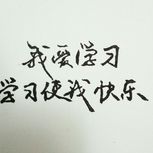 我爱学习
学习使我快乐